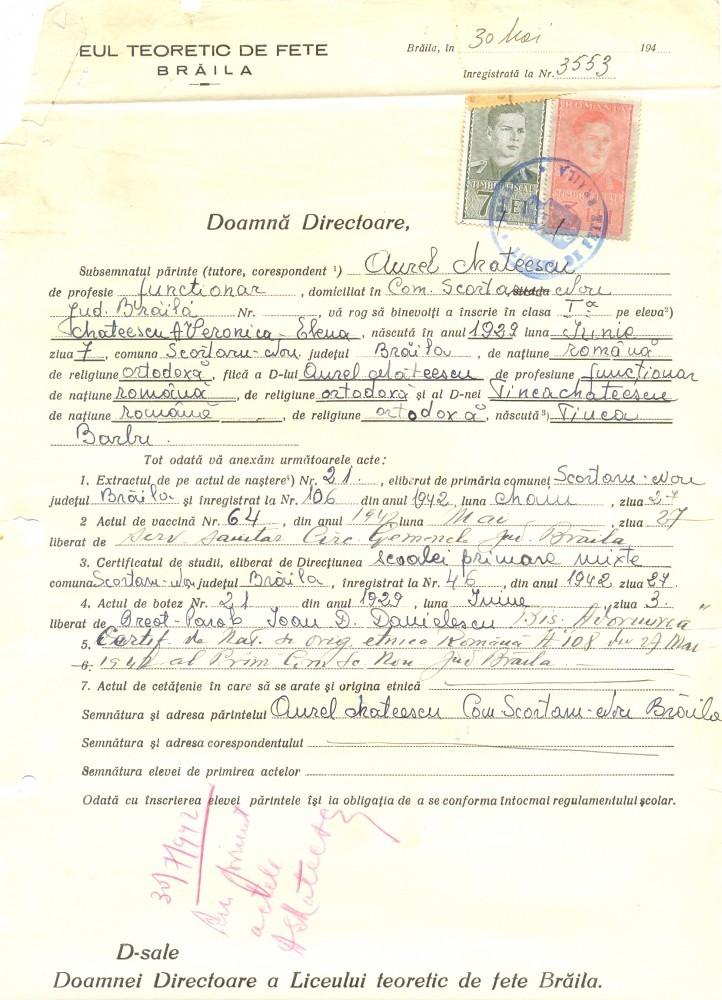 EUL TEORETIC DE FETE
BRĂILA
Brăila, în 30 Mai 194
înregistrată la Nr. 3553
ROMANIA
TIMBRU FISCAL
7 LEI
DE FETE
Doamnă Directoare,
Subsemnatul părinte (tutore, corespondent ¹) Aurel Mateescu
de profesie funcționar, domiciliat în Com. Scortaru Nou
Jud. Brăila Nr. , vă rog să binevoiți a înscrie în clasa I a pe eleva²)
Mateescu A Veronica-Elena, născută în anul 1929 luna Iunie
ziua 7, comuna Scortaru-Nou județul Brăila, de națiune română
de religiune ortodoxă, fiică a D-lui Aurel Mateescu de profesiune funcționar
de națiune română, de religiune ortodoxă și al D-nei Tinca Mateescu
de națiune română, de religiune ortodoxă, născută³) Tinca
Barbu.
Tot odată vă anexăm următoarele acte:
1. Extractul de pe actul de naștere⁴) Nr. 21., eliberat de primăria comunei Scortaru-Nou
județul Brăila și înregistrat la Nr. 106 din anul 1942, luna Mai, ziua 27
2 Actul de vaccină Nr. 64, din anul 1942 luna Mai, ziua 27
liberat de Serv. Sanitar Circ. Gemenele Jud. Brăila
3. Certificatul de studii, eliberat de Direcțiunea scoalei primare mixte
comuna Scortaru-Nou județul Brăila, înregistrat la Nr. 46, din anul 1942 ziua 27.
4. Actul de botez Nr. 21 din anul 1929, luna Iunie, ziua 3.
liberat de Preot-Paroh Ioan D. Danielescu Bis. „Adormirea"
5. Certif. de Nat. și orig. etnica Română N 108 din 29 Mai
6. 1942 al Prim. Com. Sc. Nou Jud Brăila
7. Actul de cetățenie în care să se arate și origina etnică
Semnătura și adresa părintelui Aurel Mateescu Com Scortaru-Nou Brăila
Semnătura și adresa corespondentului
Semnătura elevei de primirea actelor
Odată cu înscrierea elevei părintele își ia obligația de a se conforma întocmai regulamentului școlar.
30/7/942
Am primit
actele
AMateescu
D-sale
Doamnei Directoare a Liceului teoretic de fete Brăila.